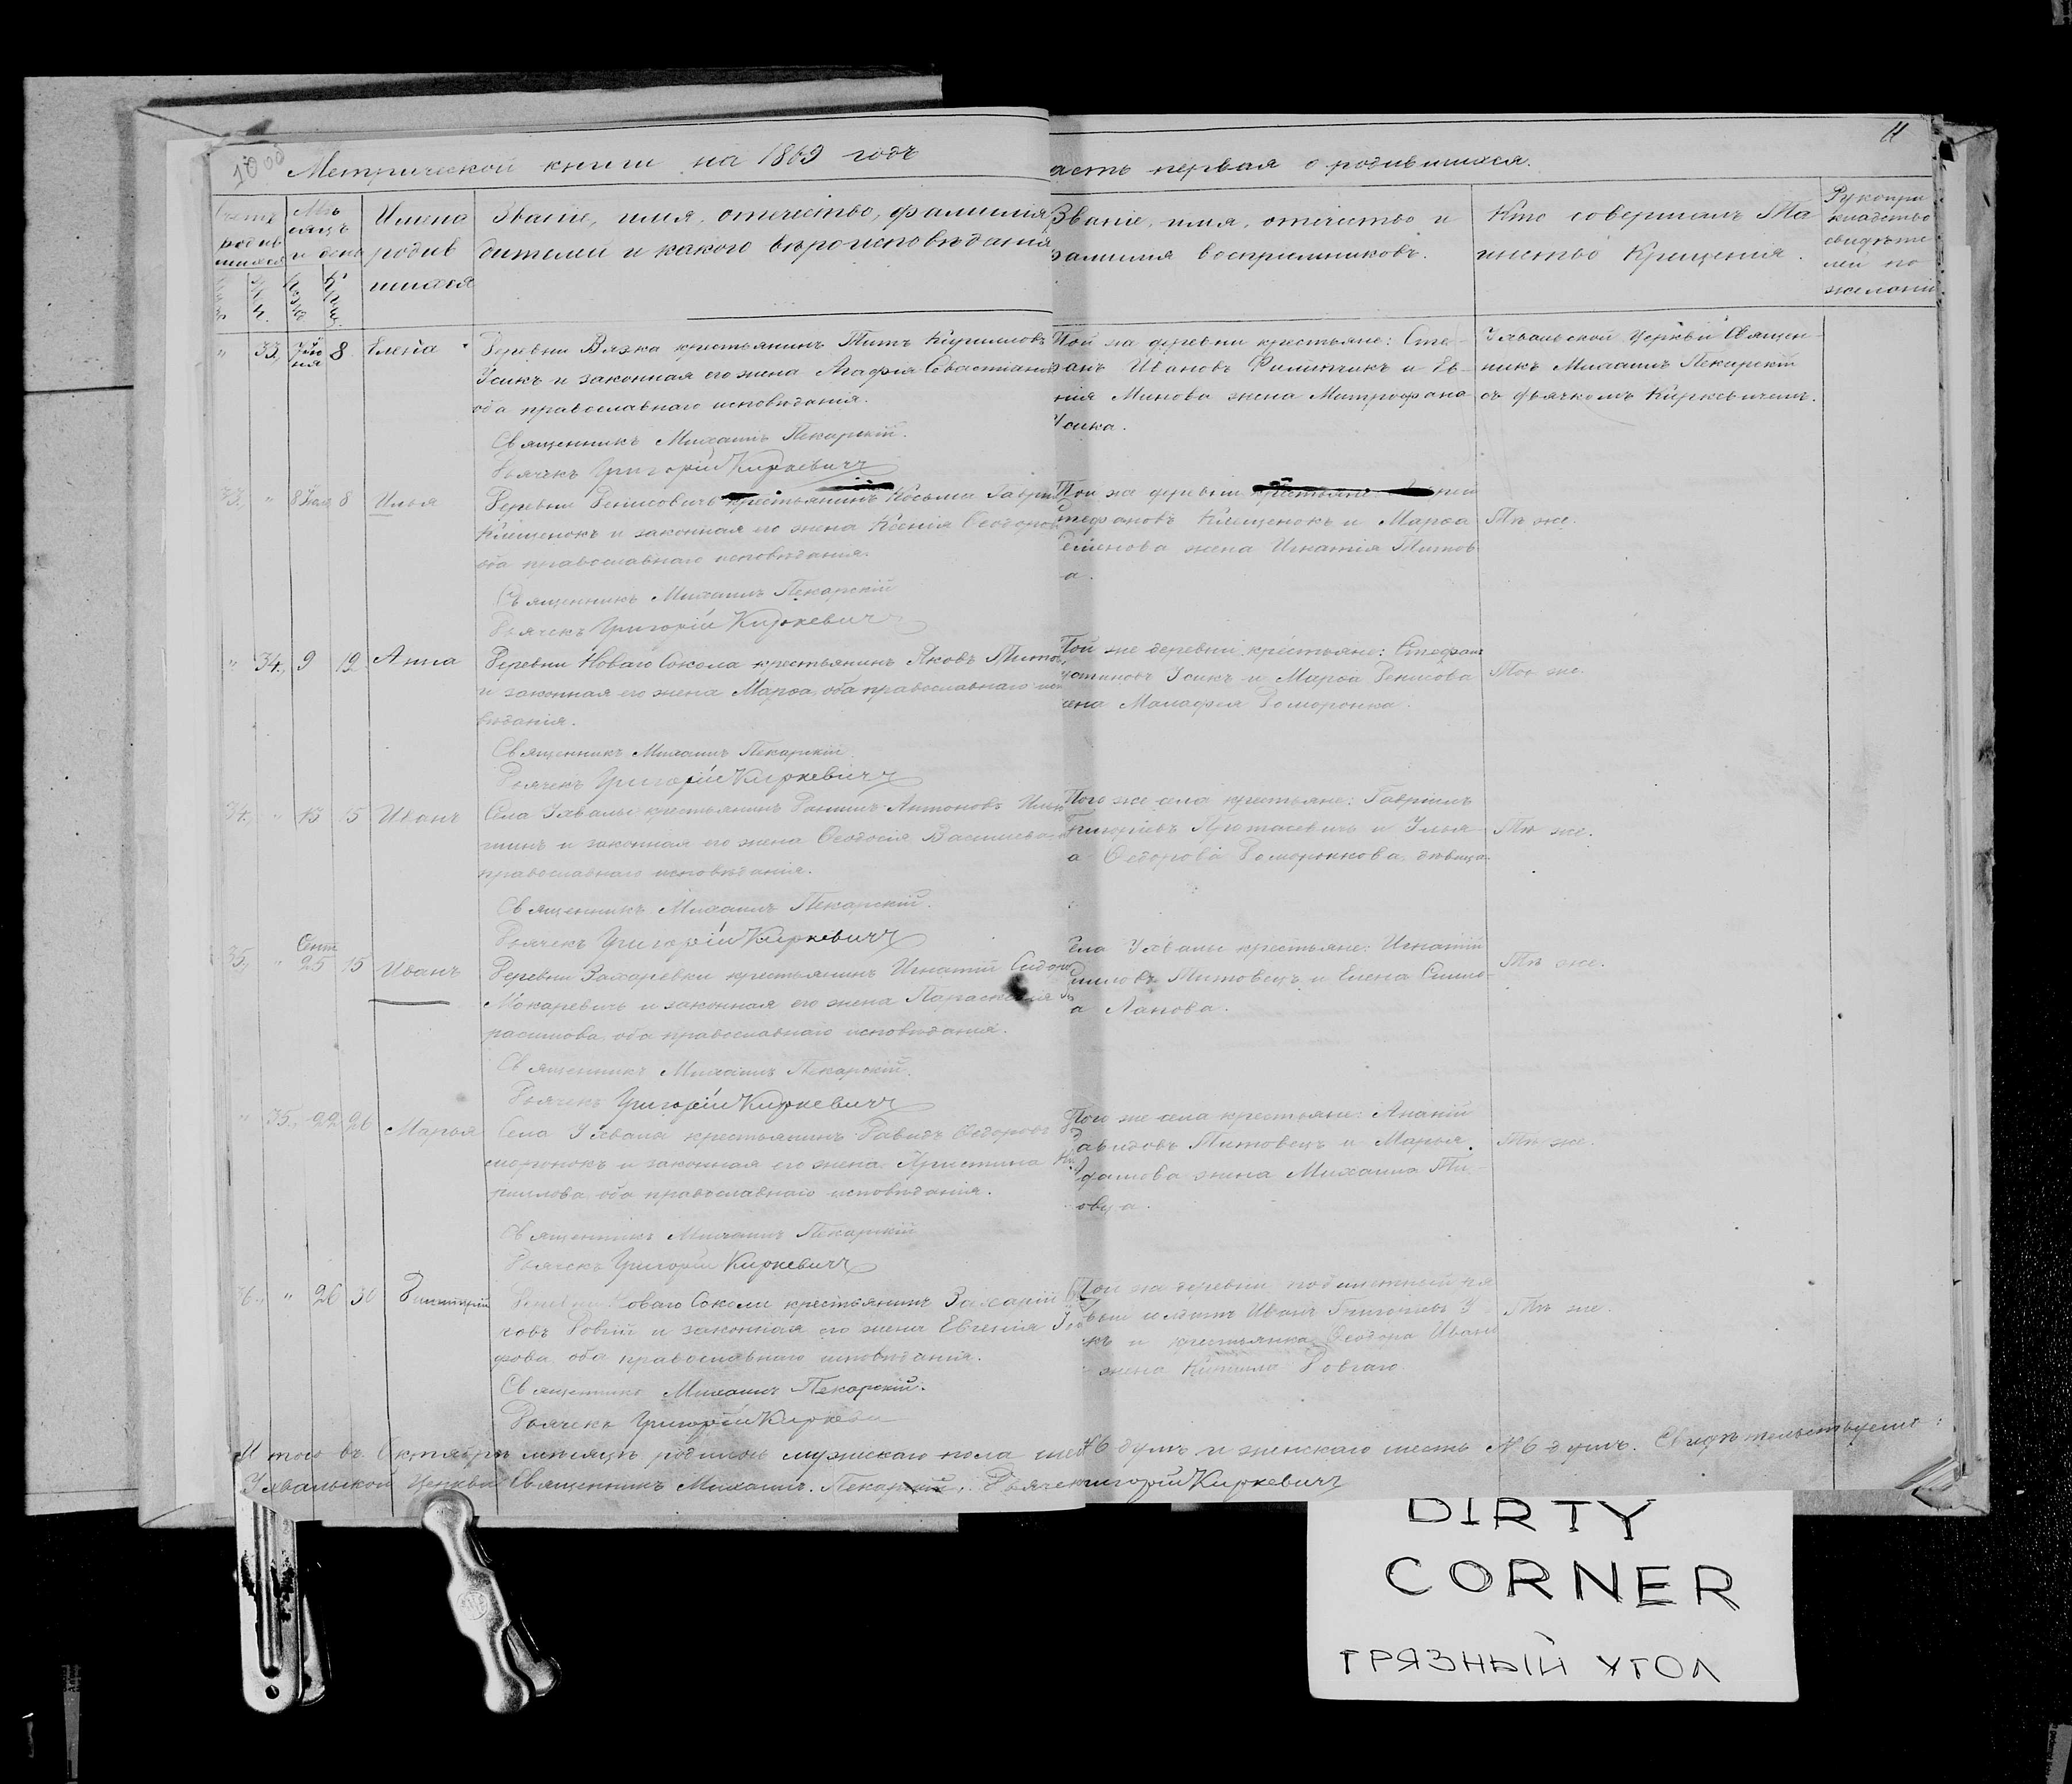 11
Метрической книги на 1869 годъ
асть первая о родившихся.
Мѣ
сяцъ
и день
Имена
родив
шихся
Званіе, имя, отечество, фамилія
дителей и какого вѣроисповѣданія
Званіе, имя, отечество и
фамилія воспріемниковъ.
Кто совершалъ Та
инство Крещенія.
Рукопри
кладство
свидѣте
лей по
желанію
" 33, 8 Елена
Деревни Вязка крестьянинъ Титъ Кириловъ
Усикъ и законная его жена Агафія Севастіанова
оба православнаго исповѣданія.
Священникъ Михаилъ Пекарскій.
Дьячекъ Григорій Киркевичъ
Той же деревни крестьяне: Сте-
анъ Ивановъ Филипчикъ и Ев-
нія Минова жена Митрофана
Усика.
Ухвальской Церкви Священ-
никъ Михаилъ Пекарскій
съ дьячкомъ Киркевичемъ.
33, " 8 8 Илья
Деревни Денисовичъ крестьянинъ Косьма
Клещенокъ и законная его жена Ксенія Ѳеодоров
оба православнаго исповѣданія.
Священникъ Михаилъ Пекарскій
Дьячекъ Григорій Киркевичъ
Той же деревни крестьяне:
тефановъ Клещенокъ и Марѳа
Семенова жена Игнатія Титов
а.
Тѣ же.
" 34, 9 12 Анна
Деревни Новаго Сокола крестьянинъ Яковъ Титов
и законная его жена Марѳа, оба православнаго испо
вѣданія.
Священникъ Михаилъ Пекарскій
Дьячекъ Григорій Киркевичъ
Той же деревни крестьяне: Стефанъ
Устиновъ Усикъ и Марѳа Денисова
жена Малафея Доморонка.
Тѣ же.
34, " 13 15 Иванъ
Села Ухвалы крестьянинъ Даніилъ Антоновъ
и законная его жена Ѳеодосія Васильева
православнаго исповѣданія.
Священникъ Михаилъ Пекарскій.
Дьячекъ Григорій Киркевичъ
Того же села крестьяне: Гавріилъ
Григорьевъ Протасевичъ и Улья-
а Ѳедорова Доморонкова, дѣвица.
Тѣ же.
35, " Сент 25 15 Иванъ
Деревни Захаревки крестьянинъ Игнатій Сидоро
Мокаревичъ и законная его жена Параскевія
расимова, оба православнаго исповѣданія.
Священникъ Михаилъ Пекарскій.
Дьячекъ Григорій Киркевичъ
Села Ухвалы крестьяне: Игнатій
Титовецъ и Елена
а Ланова.
Тѣ же.
" 35, 22 26 Марья
Села Ухвалы крестьянинъ Давидъ Ѳедоровъ
моронокъ и законная его жена Христина Ки
рилова, оба православнаго исповѣданія.
Священникъ Михаилъ Пекарскій
Дьячекъ Григорій Киркевичъ
Того же села крестьяне: Ананій
Давидовъ Титовецъ и Марья
Адамова жена Михаила Ти-
овца.
Тѣ же.
36, " 26 30 Димитрій
Деревни Новаго Сокола крестьянинъ Захарій
ковъ Довгій и законная его жена Евгенія
фова, оба православнаго исповѣданія.
Священникъ Михаилъ Пекарскій.
Дьячекъ Григорій Киркеви
Той же деревни
Иванъ Григорьевъ У
къ и крестьянка Ѳеодора Иванова
жена Кирилла Довгаго.
Тѣ же.
И того въ Октябрѣ мѣсяцѣ родилось мужскаго пола шесть № 6 душъ и женскаго шесть № 6 душъ. Свидѣтельствуемъ:
Ухвальской Церкви Священникъ Михаилъ Пекарскій. Дьячекъ Григорій Киркевичъ
DIRTY
CORNER
ГРЯЗНЫЙ УГОЛ